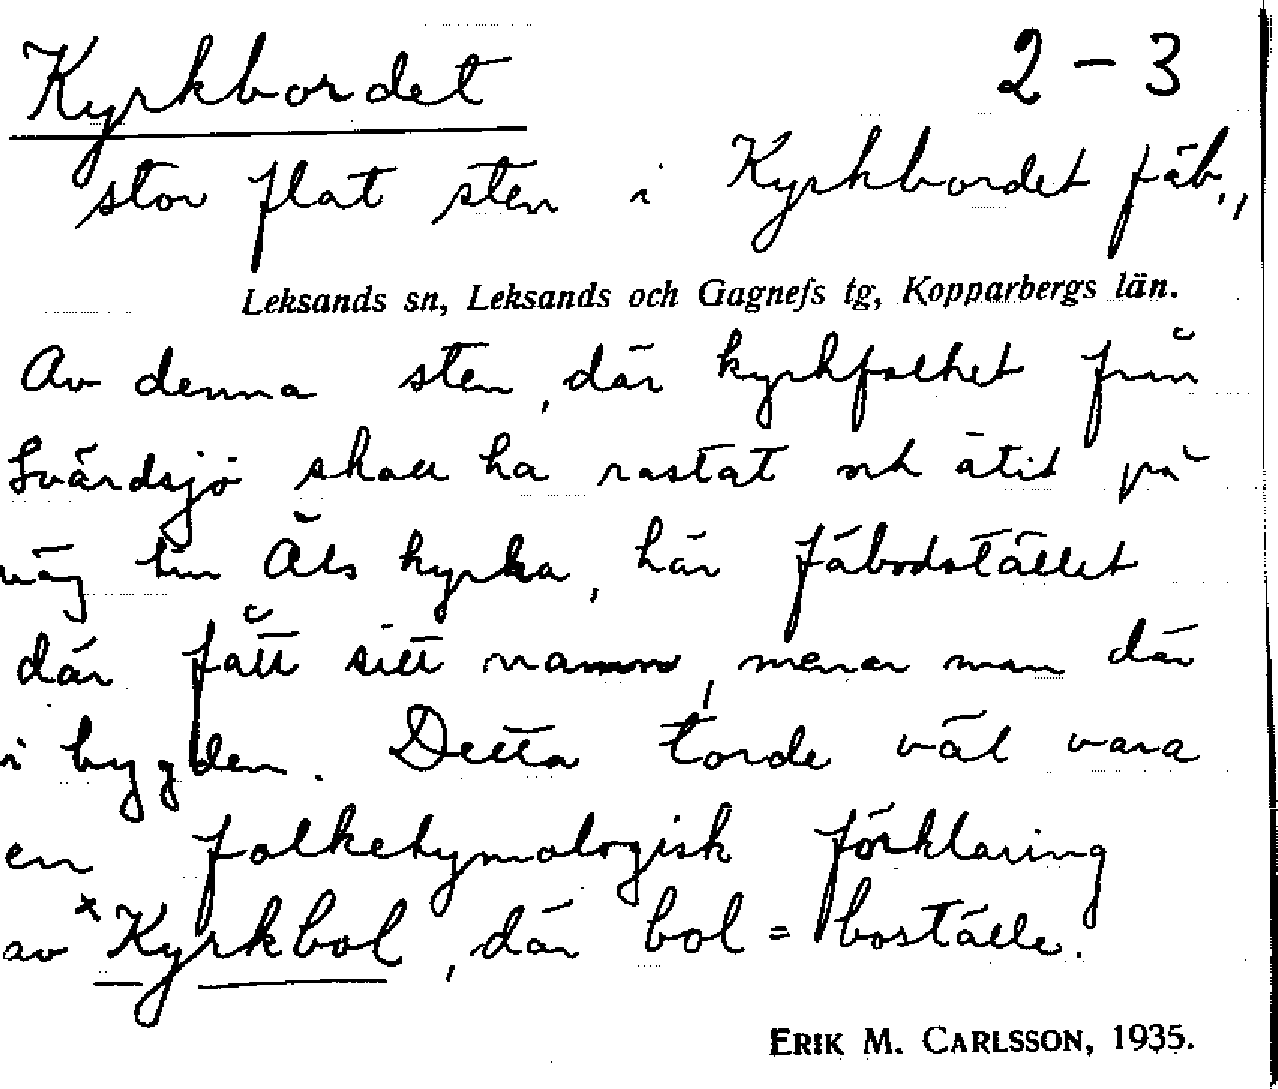 Kyrkbordet 2-3
stor flat sten i Kyrkbordet fäb.,
Leksands sn, Leksands och Gagnefs tg, Kopparbergs län.
Av denna sten, där kyrkfolket från
Svärdsjö skall ha rastat och ätit på
väg till Åls kyrka, här fäbodstället
där fått sitt namn, menar man där
i bygden. Detta torde väl vara
en folketymologisk förklaring
av *Kyrkbol, där bol = boställe.
ERIK M. CARLSSON, 1935.